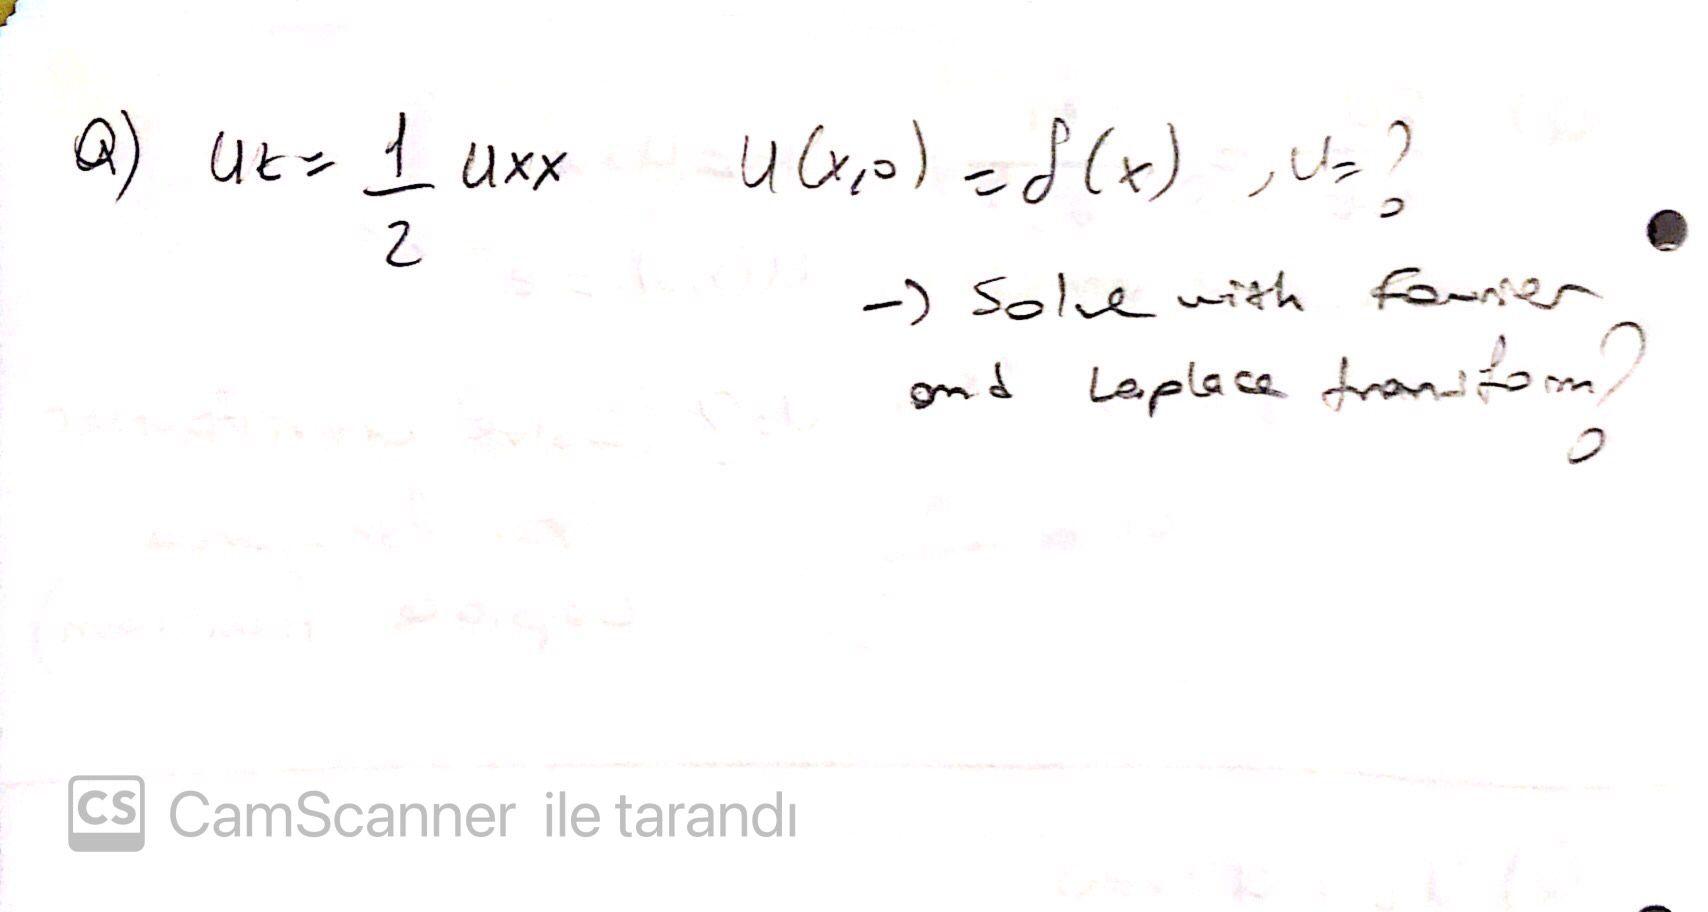 Q) ut = 1/2 uxx u(x,0) = δ(x) , u=?
→ Solve with fourier
and Laplace transform?
CS CamScanner ile tarandı